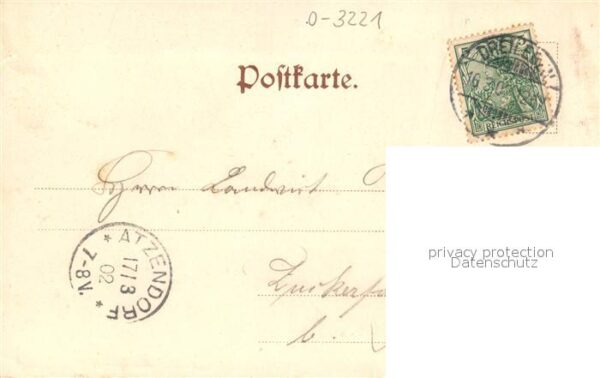 D-3221
Postkarte.
Herrn Landwirt
privacy protection
Datenschutz
ATZENDORF
17/3
02
7-8V.
Zuckerfa
b.